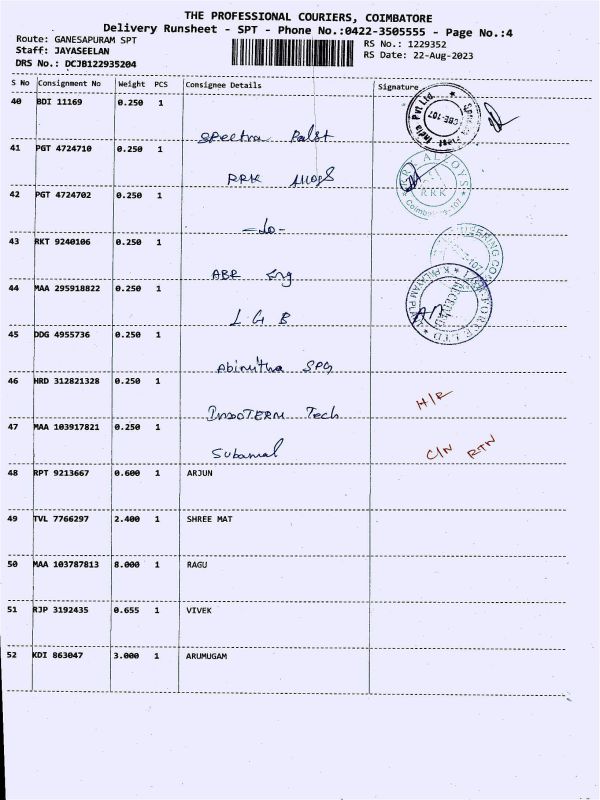 THE PROFESSIONAL COURIERS, COIMBATORE
Delivery Runsheet - SPT - Phone No.:0422-3505555 - Page No.:4
Route: GANESAPURAM SPT
RS No.: 1229352
Staff: JAYASEELAN
RS Date: 22-Aug-2023
DRS No.: DCJB122935204
S No Consignment No Weight PCS Consignee Details Signature
40 BDI 11169 0.250 1
Spectra Palst
41 PGT 4724710 0.250 1
RRK Alloys
42 PGT 4724702 0.250 1
-do-
43 RKT 9240106 0.250 1
ABR Eng
44 MAA 295918822 0.250 1
L G B
45 DDG 4955736 0.250 1
Abinitha SPG
46 HRD 312821328 0.250 1
H/R
Tech
47 MAA 103917821 0.250 1
C/N RTN
48 RPT 9213667 0.600 1 ARJUN
49 TVL 7766297 2.400 1 SHREE MAT
50 MAA 103787813 8.000 1 RAGU
51 RJP 3192435 0.655 1 VIVEK
52 KDI 863047 3.000 1 ARUMUGAM